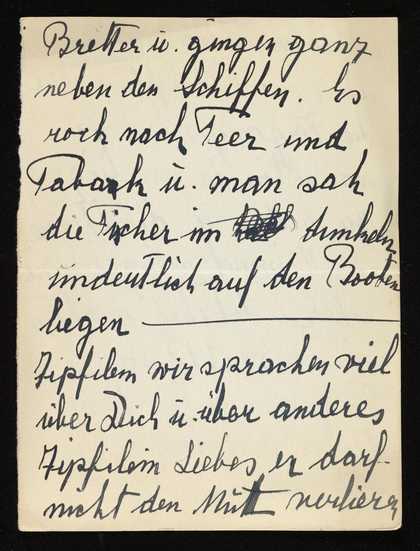 Bretter u. gingen ganz
neben den Schiffen. Es
roch nach Teer und
Taback u. man sah
die Fischer im dunkeln
undeutlich auf den Booten
liegen
Zipfilem wir sprachen viel
über Dich u. über anderes
Zipfilem Liebes er darf
nicht den Mutt verlieren